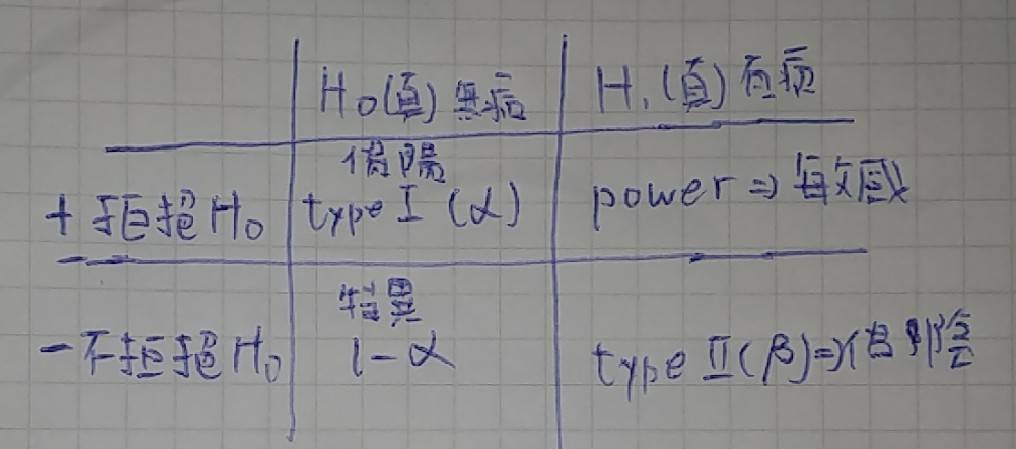 H0(真) 無病 H1(真) 有病
偽陽
+ 拒絕H0 type I (α) power ⇒ 敏感
特異
- 不拒絕H0 1-α type II(β)⇒偽陰